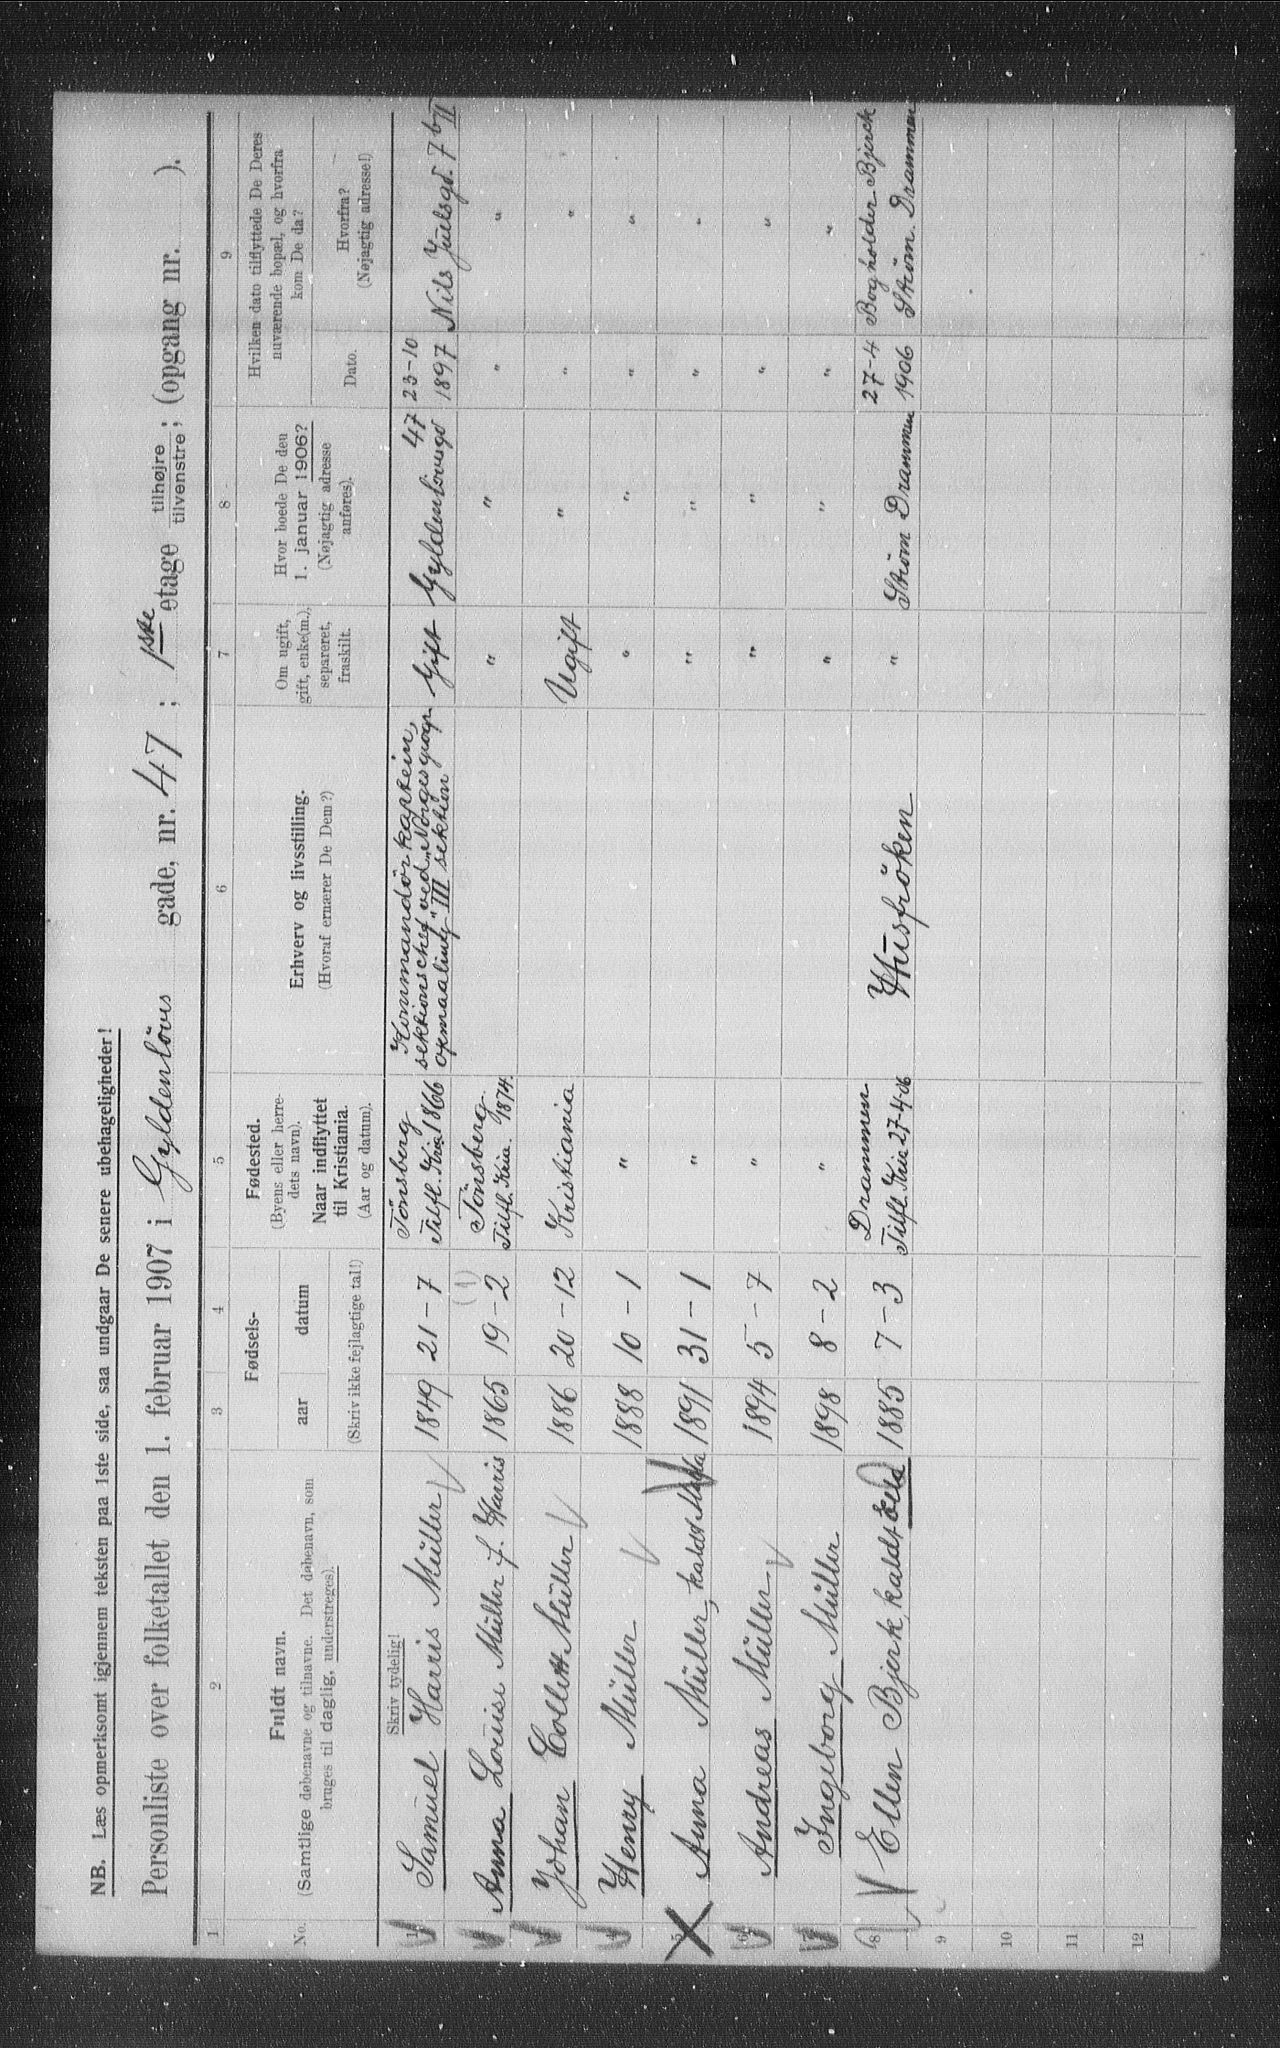 NB. Læs opmerksomt igjennem teksten paa 1ste side, saa undgaar De senere ubehageligheder!
Personliste over folketallet den 1. februar 1907 i Gyldenlövs gade, nr. 47; 1ste etage tilhøjre / tilvenstre; (opgang nr. ).
1 2 3 4 5 6 7 8 9
No.
Fuldt navn.
(Samtlige døbenavne og tilnavne. Det døbenavn, som
bruges til daglig, understreges).
Fødsels-
aar datum
(Skriv ikke fejlagtige tal!)
Fødested.
(Byens eller herre-
dets navn).
Naar indflyttet
til Kristiania.
(Aar og datum).
Erhverv og livsstilling.
(Hvoraf ernærer De Dem?)
Om ugift,
gift, enke(m.),
separeret,
fraskilt.
Hvor boede De den
1. januar 1906?
(Nøjagtig adresse
anføres).
Hvilken dato tilflyttede De Deres
nuværende bopæl, og hvorfra
kom De da?
Dato.
Hvorfra?
(Nøjagtig adresse!)
Skriv tydelig!
1 Samuel Harris Müller 1849 21-7 Tönsberg Tilfl. Kria 1866 Kommandörkaptein, sektionschef ved „Norges geogr. opmaaling" III sektion Gift Gyldenlövesgd 47 23-10 1897 Nils Juelsgd. 7 b II
2 Anna Louise Müller f. Harris 1865 19-2 (1) Tönsberg Tilfl. Kria. 1874. " " " "
3 Johan Collett Müller 1886 20-12 Kristiania Ugift " " "
4 Henry Müller 1888 10-1 " " " " "
5 Anna Müller, kaldt 1891 31-1 " " " " "
6 Andreas Müller 1894 5-7 " " " " "
7 Ingeborg Müller 1898 8-2 " " " " "
8 Ellen Bjerk, kaldt 1885 7-3 Drammen Tilfl. Kria 27-4-06 Husfröken " Ström Drammen 27-4 1906 Bogholder Bjerck Ström. Drammen
9
10
11
12